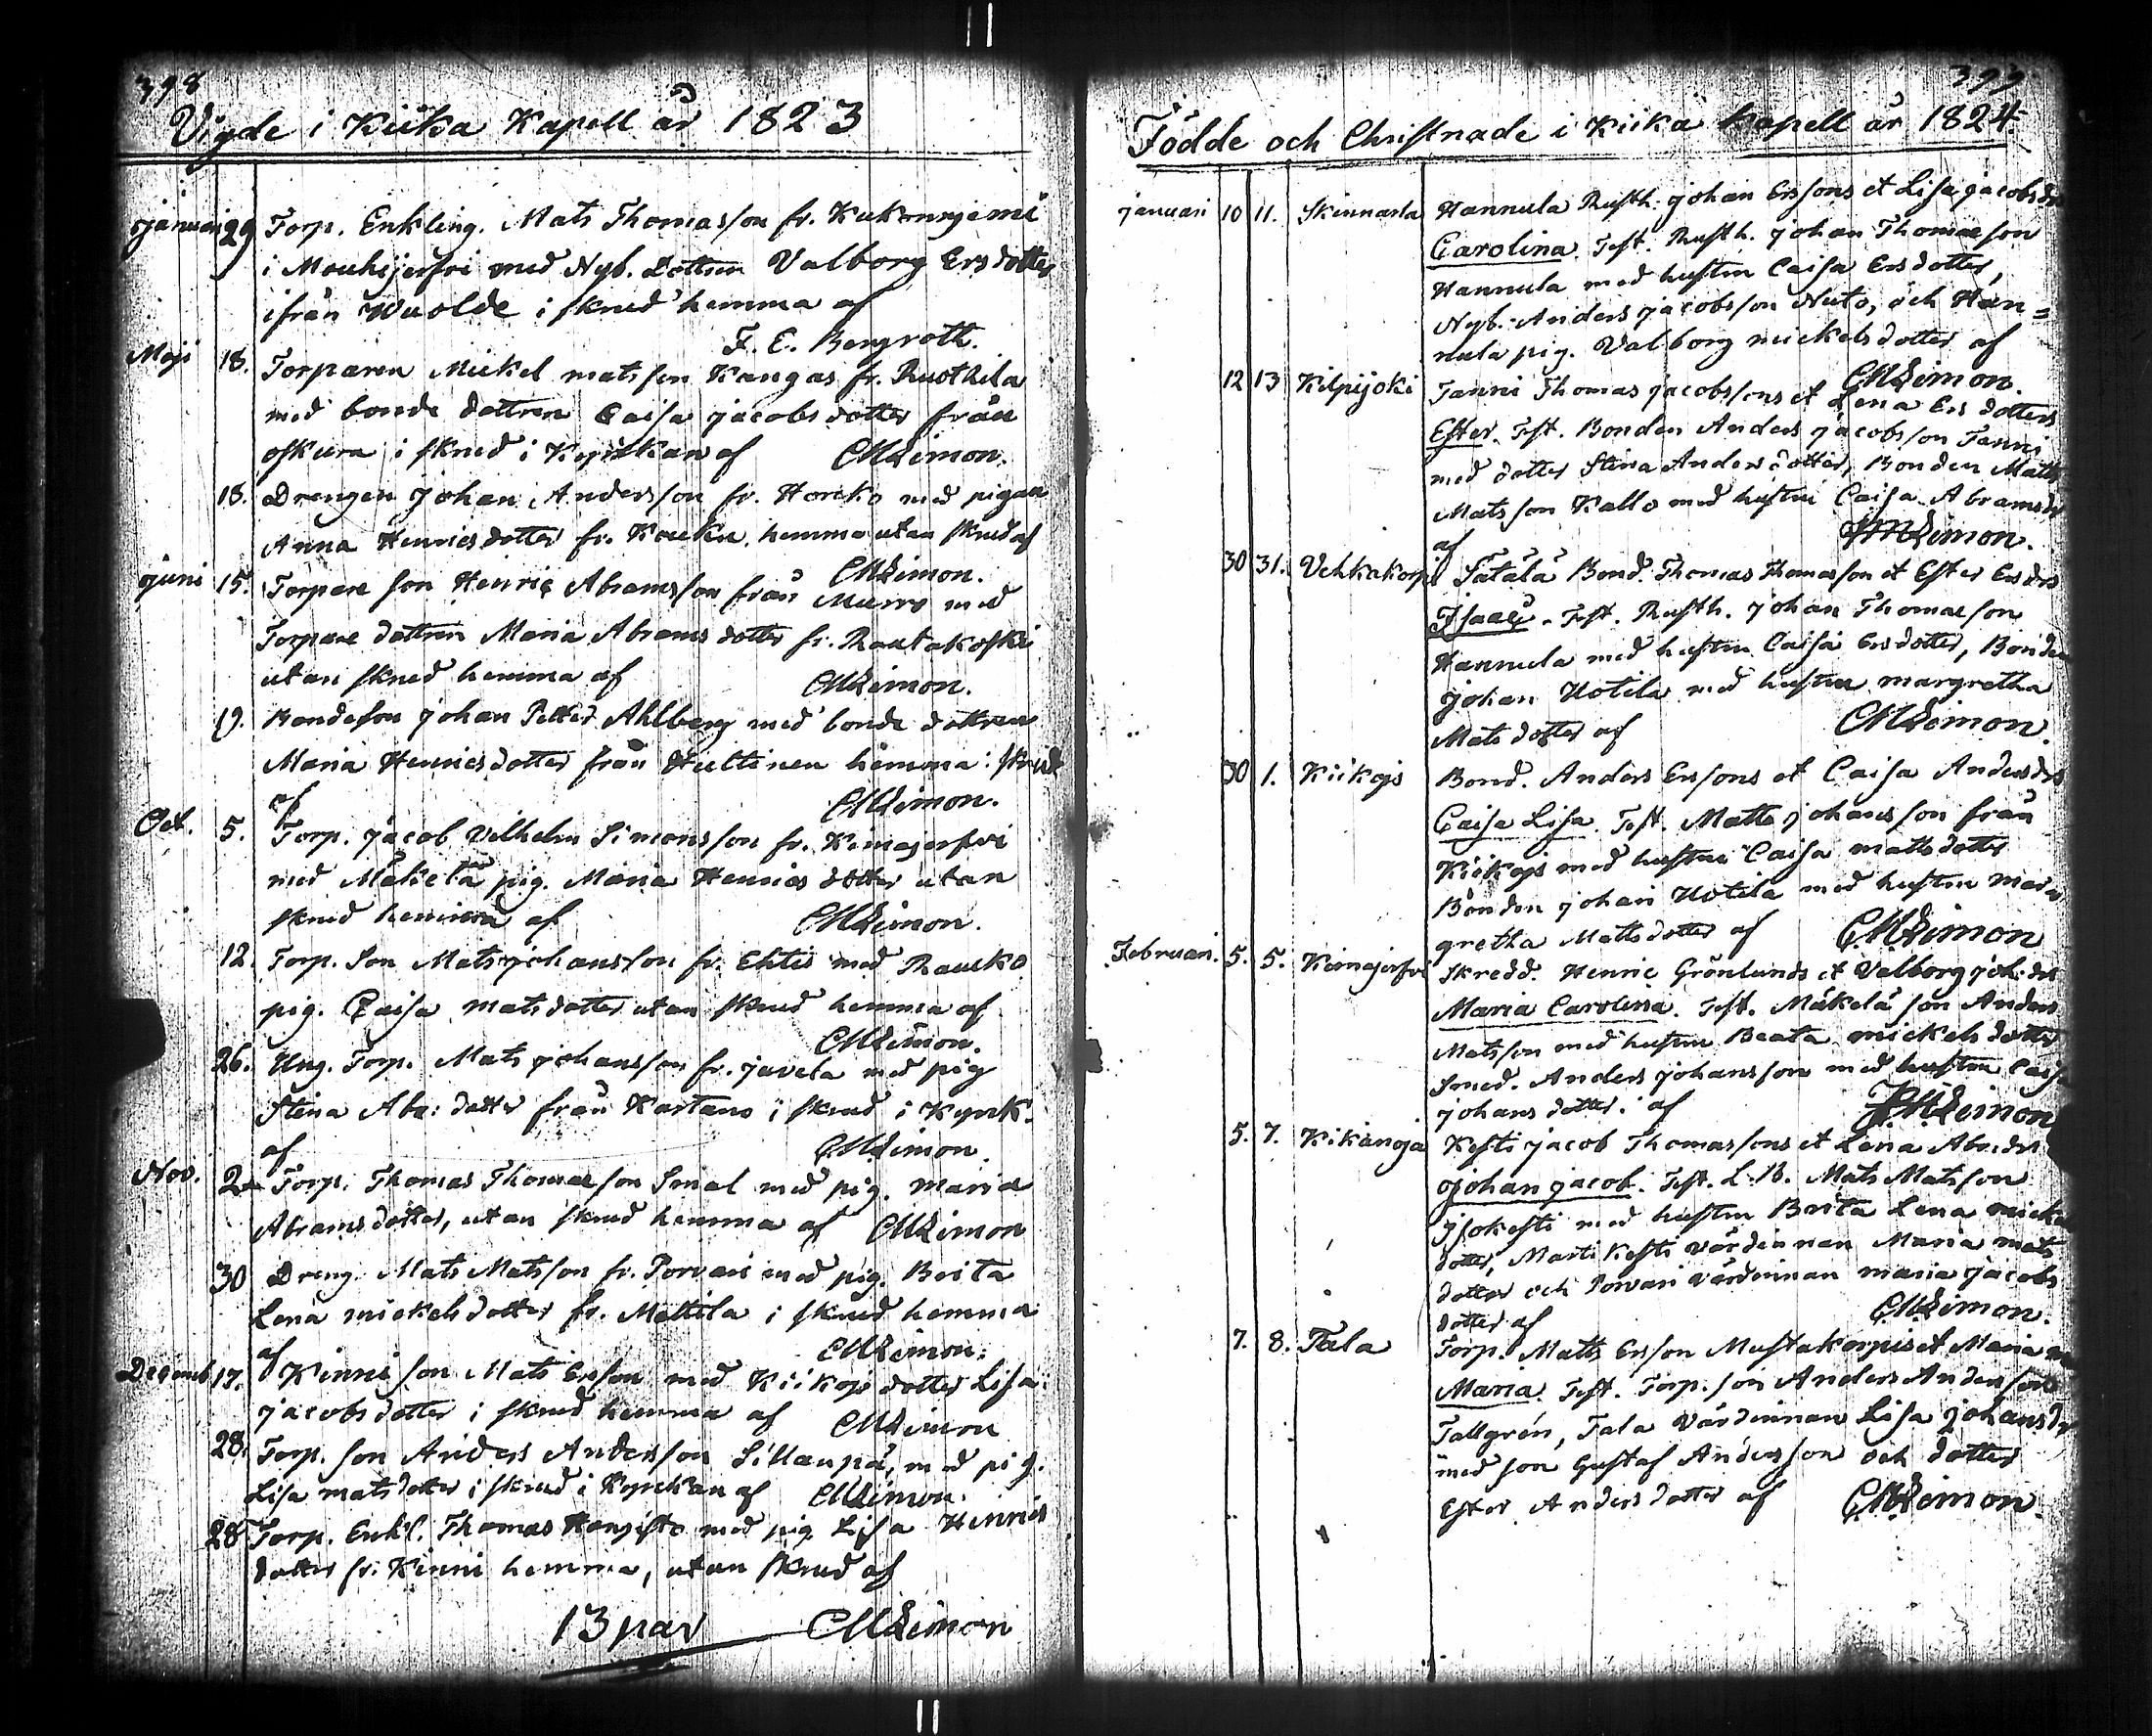 398
Vigde i Kiika Kapell år 1823
januari 29 Torp. Enkling. Mats Thomasson fr.
i Mouhijerfvi med Nyb. Dottren Valborg Ersdotter
ifrån Wuolde i skrud hemma af
F. E. Bergroth.
Maji 18. Torparen Mickel matsson Kangas fr. Ruothila
med bonde dottren Caisa jacobsdotter från
i skrud i Kyrkan af CMLimon.
18. Drengen Johan Andersson fr. Horcko med pigan
Anna Henricsdotter fr. hemma utan skrud af
CMLimon.
juni 15. Torpare son Henric Abramsson från Murro med
Torpare dottren Maria Abramsdotter fr. Rautakoski
utan skrud hemma af CMLimon.
19. Bondeson Johan Petter Ahlberg med bonde dottren
Maria Henricsdotter från hemma i skrud
af CMLimon.
Oct. 5. Torp. jacob Vilhelm Simonsson fr. Kimajerfvi
med Mäkelä pig. Maria Henricsdotter utan
skrud hemma af CMLimon.
12. Torp. Son Mats johansson fr. Ehtis med Raucko
pig. Caisa matsdotter utan skrud hemma af
CMLimon.
26. Ung. Torp. Mats johansson fr. javela med pig
Stina Abr: dotter från Kartano i skrud i Kyrk.
af CMLimon.
Nov. 2 Torp. Thomas Thomasson Smal med pig. maria
Abramsdotter, utan skrud hemma af CMLimon
30 Dreng. Mats Matsson fr. Porvari med pig. Brita
Lena mickelsdotter fr. Mattila i skrud hemma
af CMLimon.
Decemb 17. Kinni son Mats Ersson med Kiikojs dotter Lisa
jacobsdotter i skrud hemma af CMLimon
28. Torp. son Anders Andersson Sillanpä, med pig.
Lisa matsdotter i skrud i Kyrckan af CMLimon.
28 Torp. Enkl. Thomas Hangisto med pig Lisa Henrics
dotter fr. Kinni hemma, utan skrud af
13 par CMLimon
399
Födde och Christnade i Kiika kapell år 1824
januari 10 11. Skinnarla Hannula Rusth. johan Erssons et Lisa jacobsdrs
Carolina. Test. Rusth. johan Thomasson
Hannula med hustru Caisa Ersdotter,
Nyb. Anders jacobsson Nuto, och Han=
nula pig. Valborg mickelsdotter af
CMLimon.
12 13 Kilpijoki Tanni Thomas jacobssons et Lena Ersdotters
Ester. Test. Bonden Anders jacobsson Tanni
med dotter Stina Andersdotter, Bonden Matts
Matsson Kallo med hustru Caisa Abramsdr
af CMLimon.
30 31. Vehkakorpi Satala Bond. Thomas Thomasson et Ester Ersdrs
Isaac. Test. Rusth. johan Thomasson
Hannula med hustru Caisa Ersdotter, Bonden
johan Uotila med hustru margretha
Matsdotter af CMLimon.
30 1. Kiikojs Bond. Anders Erssons et Caisa Andersdrs
Caisa Lisa. Test. Matts johansson från
Kiikojs med hustru Caisa mattsdotter
Bonden johan Uotila med hustru mar
gretha Mattsdotter af CMLimon
Februari. 5. 5. Kimajerfvi Skredd. Henric Grönlunds et Valborg joh:drs
Maria Carolina. Test. Mäkelä son Anders
Matsson med hustru Beata mickelsdotter
Smed. Anders johansson med hustru Caisa
johansdotter. af CMLimon
5. 7. Kikanoja Kesti jacob Thomassons et Lena Abr:drs
johan jacob. Test. L.B. Mats Matsson
Isokesti med hustru Brita Lena mickels
dotter, Marti Kesti värdinnan Maria mats
dotter och Porvari värdinnan maria jacobs
dotter af CMLimon.
7. 8. Tala Torp. Matts Ersson Mustakorpis et Maria
Maria. Test. Torp. son Anders Andersson
Tallgrén, Tala värdinnan Lisa johansdr
med son Gustaf Andersson och dotter
Ester Andersdotter af CMLimon.